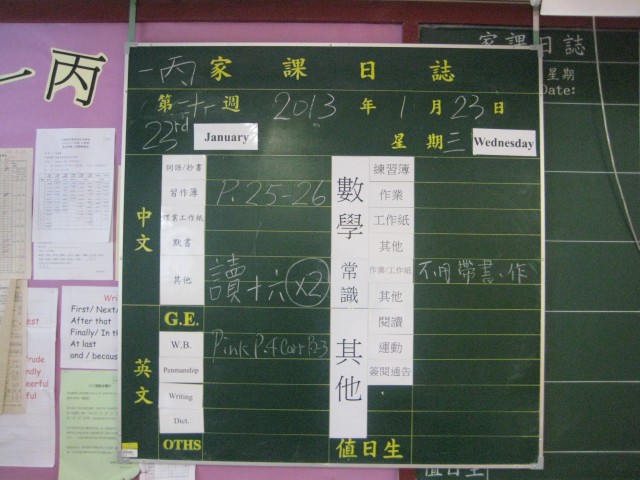 一丙
一丙 家課日誌
第二十週 2013年1月23日
23rd January 星期三 Wednesday
中文
詞語/抄書
習作簿 P.25-26
課業工作紙
默書
其他 讀十六 ×2
英文
G.E.
W.B. Pink P.4 Corr P.2-3
Penmanship
Writing
Dict.
OTHS
數學
練習簿
作業
工作紙
其他
常識
作業/工作紙 不用帶書、作
其他
其他
閱讀
運動
簽閱通告
值日生
家課日誌
星期
Date:
值日生
First/ Next/
After that
Finally/ In th
At last
and / becaus